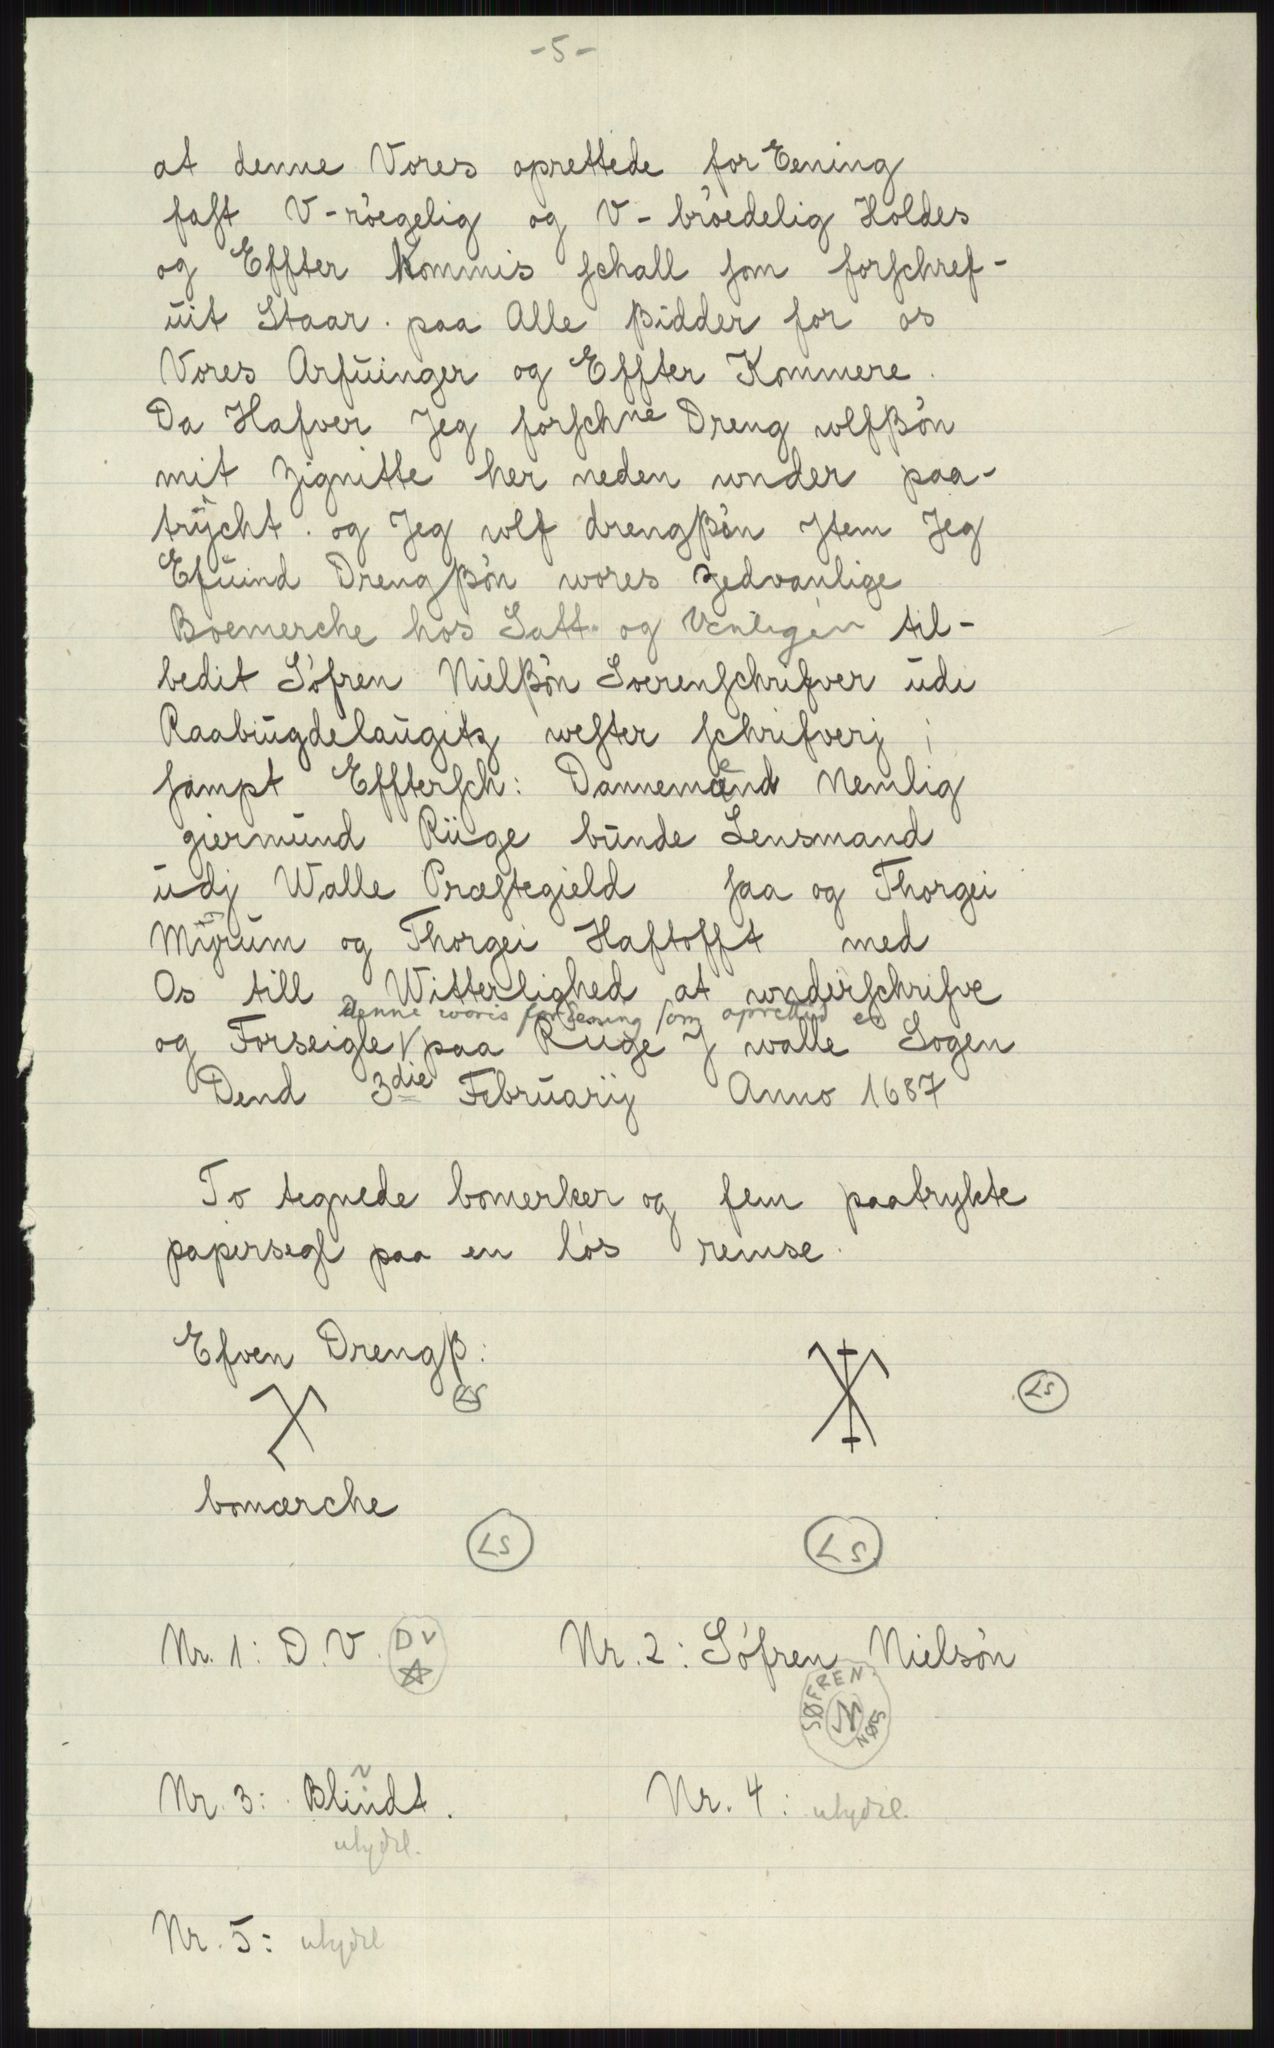 -5-
at denne Vores oprettede for Eening
fast V-röegelig og V-bröedelig Holdes
og Effter Kommis schall som forschref-
uit Staar. paa Alle ßidder for os
Vores Arfŭinger og Effter Kommere.
Da Hafver Jeg forschne Dreng wlfßøn
mit Zignitte her neden wnder paa-
trÿcht. og Jeg wlf drengßøn Jtem Jeg
Efŭind Drengßøn wores zedvanlige
Boemerche hos Satt. og Venligen til-
bedit Søfren Nielßøn Soerenschrifver ŭdi
Raabiŭgdelaŭgitz wester schrifverj ;
sampt Efftersch: Dannemænd Nemlig
giermŭnd Rüge bŭnde Lensmand
ŭdj Walle Præstegield saa og Thorgei
Mÿrŭm og Thorgei Haftofft med
Os till Witterlighed at wnderschrifve
denne woris forEening som oprettid er
og Forseigle √ paa Rüge J walle Sogen
Dend 3die Februarij Anno 1687
To tegnede bomerker og fem paatrykte
papersegl paa en løs remse.
Efven Drengß:
LS
LS
bomærche
LS
LS
Nr. 1: D. V. DV
Nr. 2: Søfren Nielsøn
SØFREN N NØLS
Nr. 3: Blindt.
utydel.
Nr. 4: utydel.
Nr. 5: utydel